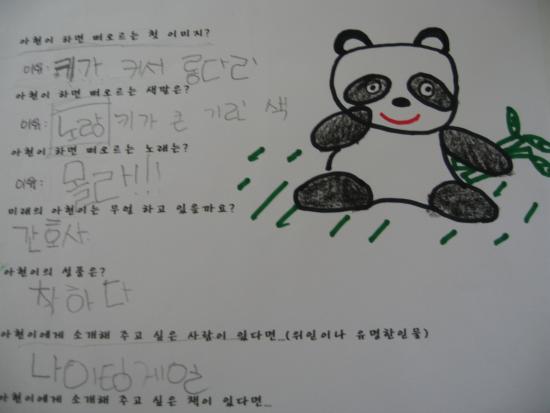 아현이 하면 떠오르는 첫 이미지?
이유: 키가 커서 롱다리
아현이 하면 떠오르는 색깔은?
이유: 노랑 키가 큰 기린 색
아현이 하면 떠오르는 노래는?
이유: 몰라!!!
미래의 아현이는 무얼 하고 있을까요?
간호사
아현이의 성품은?
착하다
아현이에게 소개해 주고 싶은 사람이 있다면...(위인이나 유명한인물)
나이팅게일
아현이에게 소개해 주고 싶은 책이 있다면...